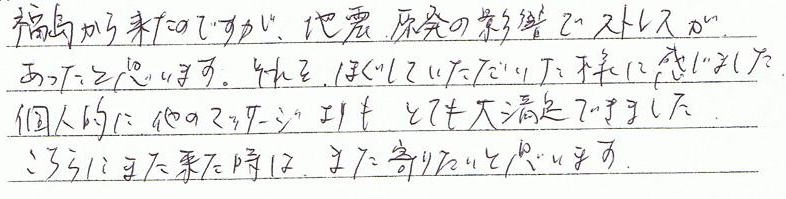 福島から来たのですが、地震、原発の影響でストレスが
あったと思います。それを、ほぐしていただいた様に感じました
個人的に他のマッサージよりも とても大満足できました。
こちらにまた来た時は、また寄りたいと思います。